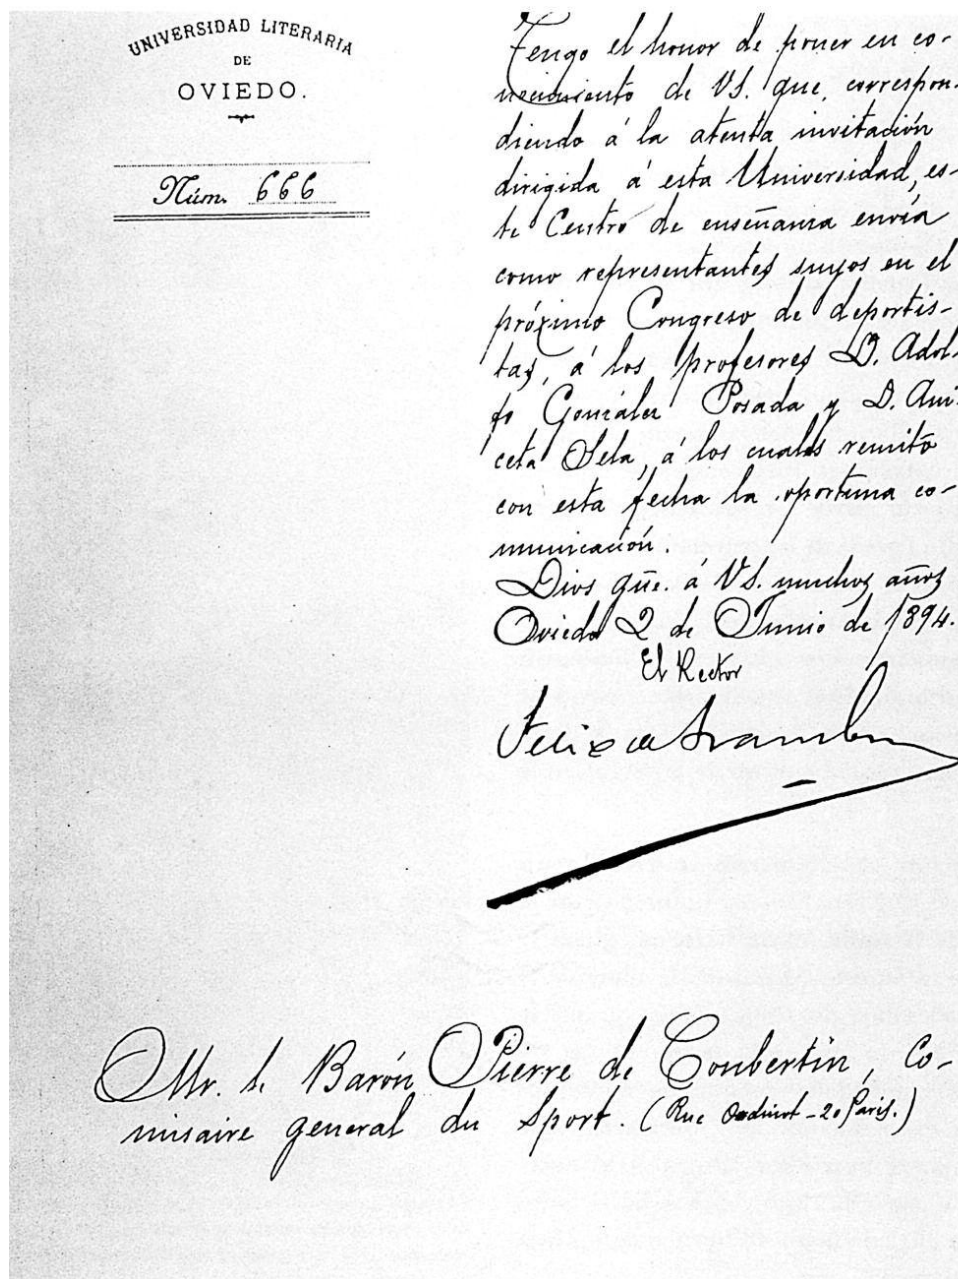 UNIVERSIDAD LITERARIA
DE
OVIEDO.
Núm. 666
Tengo el honor de poner en co-
nocimiento de VS. que, correspon-
diendo á la atenta invitación
dirigida á esta Universidad, es-
te Centro de enseñanza envía
como representantes suyos en el
próximo Congreso de deportis-
tas, á los profesores D. Adol-
fo González Posada y D. Ani-
ceto Sela, á los cuales remito
con esta fecha la oportuna co-
municación.
Dios gūe. á VS. muchos años
Oviedo 2 de Junio de 1894.
El Rector
Felix de Aramburu
Mr. le Barón Pierre de Coubertin, Co-
misaire general du Sport. (Rue Oudinot - 20 Paris.)